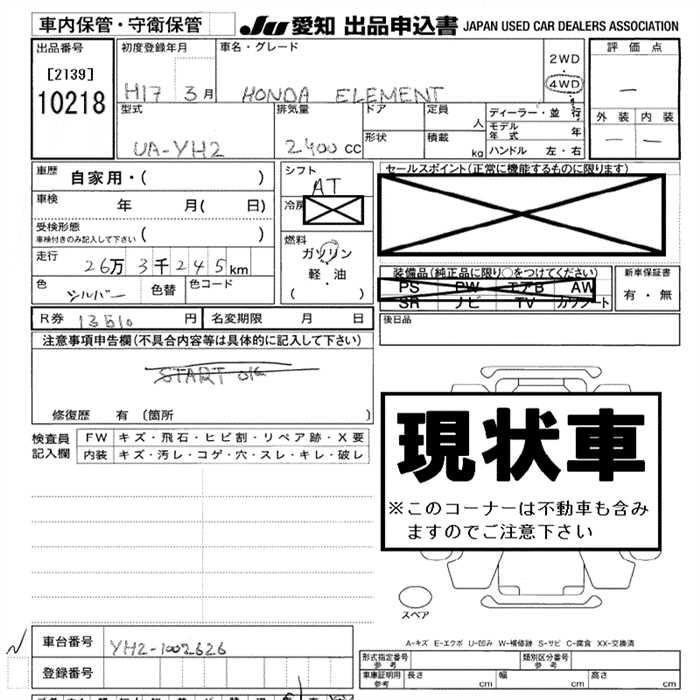 車内保管・守衛保管 JU 愛知 出品申込書 JAPAN USED CAR DEALERS ASSOCIATION
出品番号 初度登録年月 車名・グレード 2WD 評価点
[2139] H17 3月 HONDA ELEMENT 4WD —
10218 型式 排気量 ドア 定員 人 ディーラー・並行 外装 内装
形状 積載 kg モデル年式 年
UA-YH2 2400cc ハンドル 左・右 — —
車歴 自家用・( ) シフト AT セールスポイント(正常に機能するものに限ります)
車検 年 月( 日) 冷房
受検形態 ( )
車検付きのみ記入して下さい
燃料 ガソリン
走行 26万3千245km 軽・油 装備品(純品に限り○をつけてください) 新車保証書
色 シルバー 色替 色コード ( ) PS PW エアB AW 有・無
SR ナビ TV カワシート
R券 13510円 名変期限 月 日 後日品
注意事項申告欄(不具合内容等は具体的に記入して下さい)
START OK
修復歴 有 (箇所 )
現状車
※このコーナーは不動車も含み
ますのでご注意下さい
検査員 FW キズ・飛石・ヒビ割・リペア跡・X要
記入欄 内装 キズ・汚レ・コゲ・穴・スレ・キレ・破レ
スペア
A-キズ E-エクボ U-凹み W-補修跡 S-サビ C-腐食 XX-交換済
車台番号 YH2-1002626
登録番号
形式指定番号 参考 類別区分番号 参考
車庫証明用 参考 長さ cm 幅 cm 高さ cm